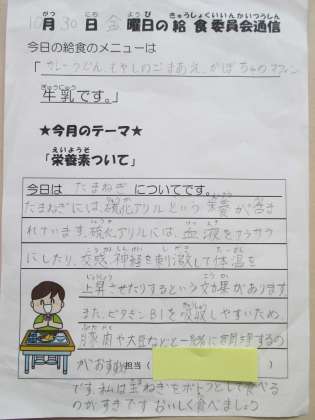 10月30日金曜日の給食委員会通信
今日の給食のメニューは
「カレーうどん、もやしのごまあえ、かぼちゃのマフィン
牛乳です。」
★今月のテーマ★
「栄養素ついて」
今日は たまねぎ についてです。
たまねぎには、硫化アリルという栄養が含ま
れています。硫化アリルには、血液をサラサラ
にしたり、交感神経を刺激して体温を
上昇させたりするという効果があります。
また、ビタミンB1を吸収しやすいため、
豚肉や大豆などと一緒に調理するの
がおすすめ 担当( )
です。私は玉ねぎをポトフとして食べる
のがすきです。おいしく食べましょう